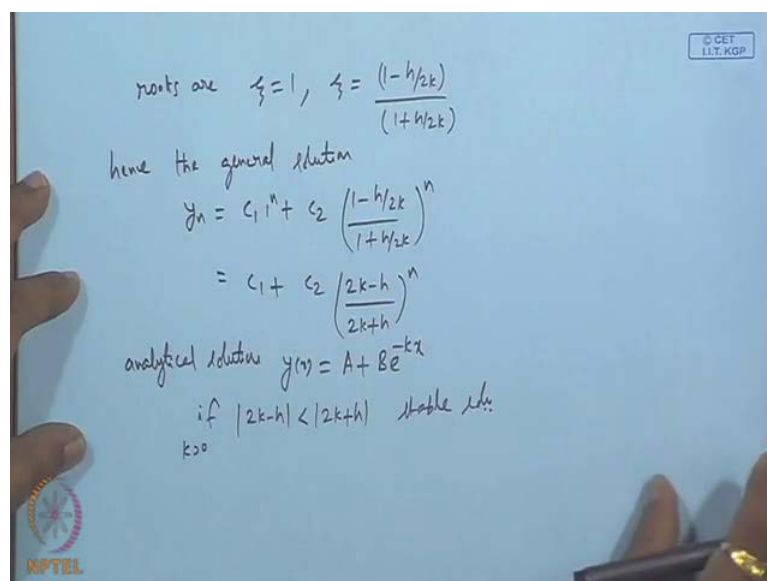 © CET
I.I.T. KGP
roots are ξ = 1, ξ = (1 - h/2k) / (1 + h/2k)
hence the general solution
yₙ = c₁ 1ⁿ + c₂ ((1 - h/2k) / (1 + h/2k))ⁿ
= c₁ + c₂ ((2k - h) / (2k + h))ⁿ
analytical solution y(x) = A + Be^{-kx}
if |2k-h| < |2k+h| stable soln.
k>0
NPTEL